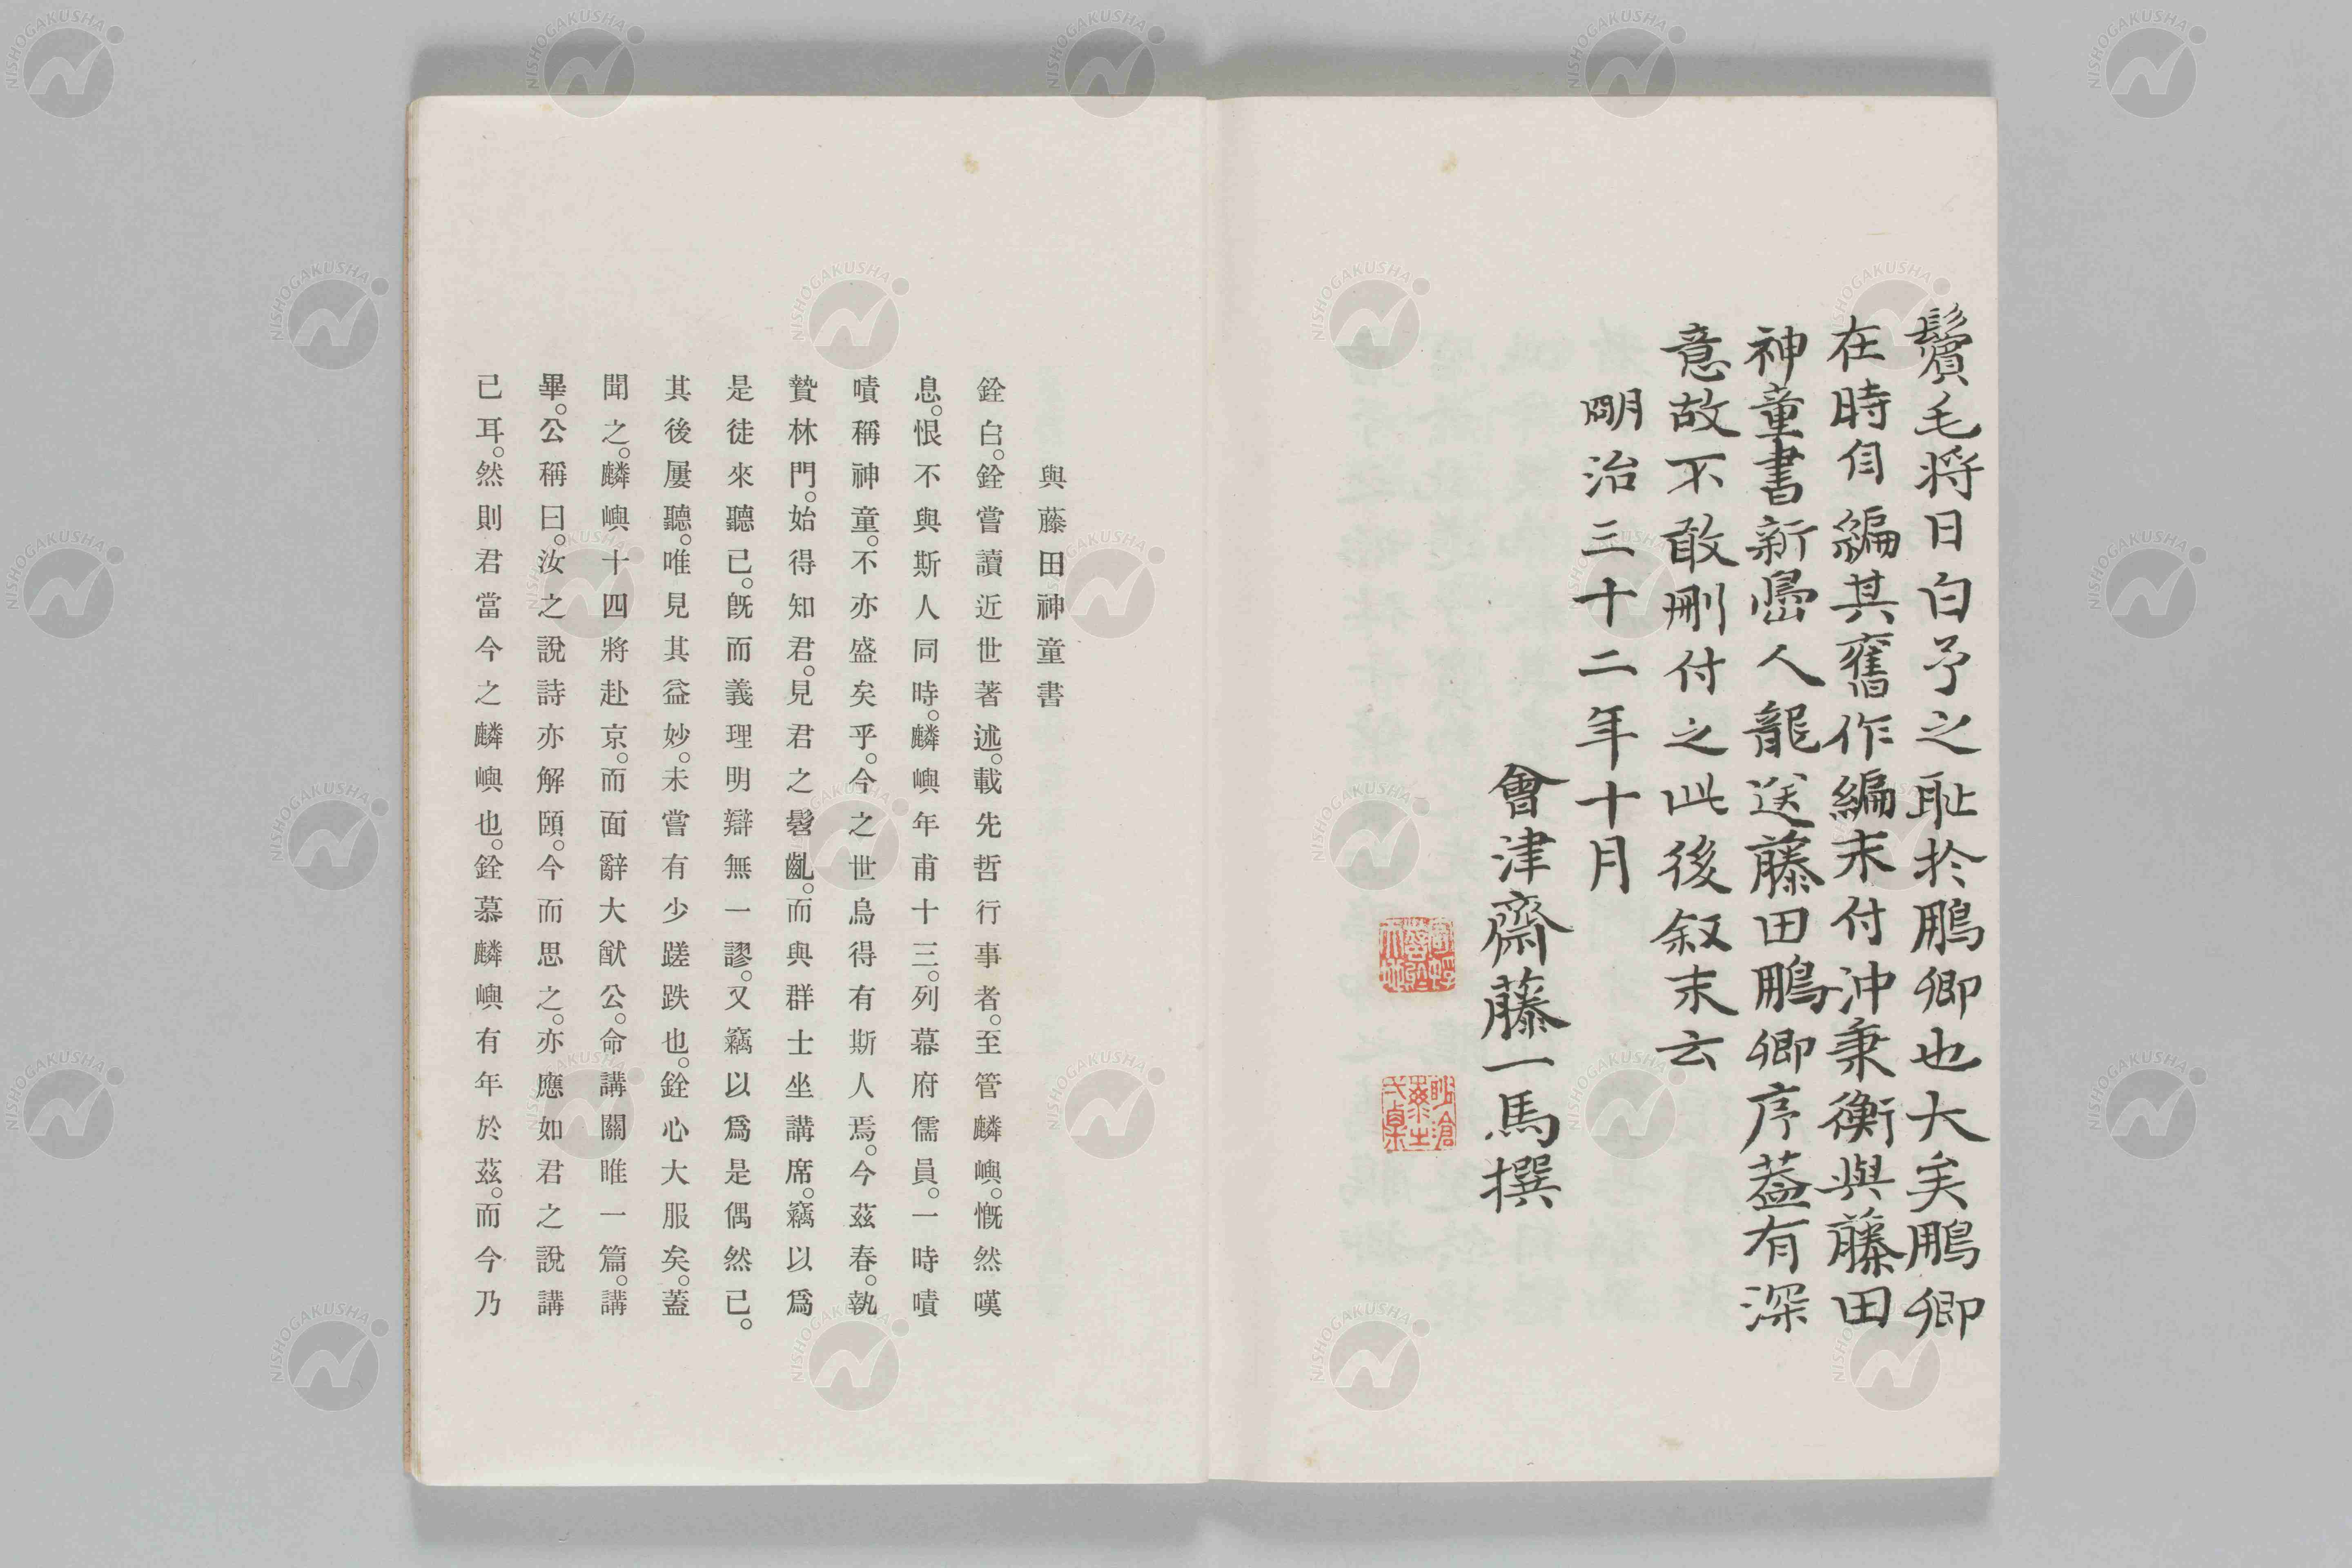 鬢毛將日白予之耻於鵬卿也大矣鵬卿
在時自編其舊作編末付沖秉衡與藤田
神童書新嶌人龍送藤田鵬卿序葢有深
意故不敢刪付之此後叙末云
明治三十二年十月
會津齋藤一馬撰
與藤田神童書
銓白。銓嘗讀近世著述。載先哲行事者。至管麟嶼。慨然嘆
息。恨不與斯人同時。麟嶼年甫十三。列幕府儒員。一時嘖
嘖稱神童。不亦盛矣乎。今之世烏得有斯人焉。今茲春。執
贄林門。始得知君。見君之髫齔。而與群士坐講席。竊以爲
是徒來聽已。旣而義理明辯無一謬。又竊以爲是偶然已。
其後屢聽。唯見其益妙。未嘗有少蹉跌也。銓心大服矣。蓋
聞之。麟嶼十四將赴京。而面辭大猷公。命講關雎一篇。講
畢。公稱曰。汝之說詩亦解頤。今而思之。亦應如君之說講
已耳。然則君當今之麟嶼也。銓慕麟嶼有年於茲。而今乃
NISHOGAKUSHA